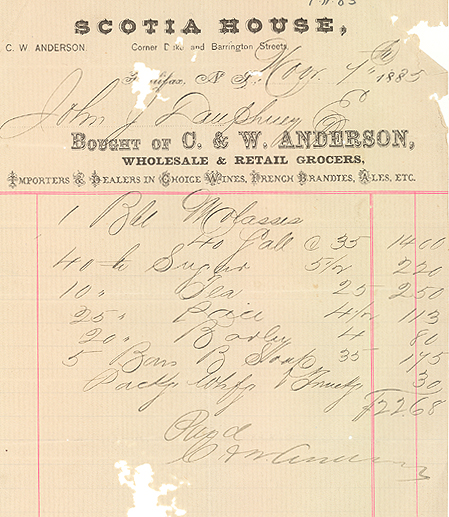 SCOTIA HOUSE,
C. W ANDERSON. Corner Duke and Barrington Streets,
Halifax, N. S., Nov. 7th 1885
John J
BOUGHT OF C. & W. ANDERSON,
WHOLESALE & RETAIL GROCERS,
IMPORTERS & DEALERS IN CHOICE WINES, FRENCH BRANDIES, ALES, ETC.
1 Bbl Molasses
40 Gall @ 35 1400
40 lb Sugar 5 1/2 220
10 " Tea 25 250
25 " Rice 4 1/2 113
20 " Barley 4 80
5 Bars B Soap 35 175
30
$22.68
Paid
C & W Anderson